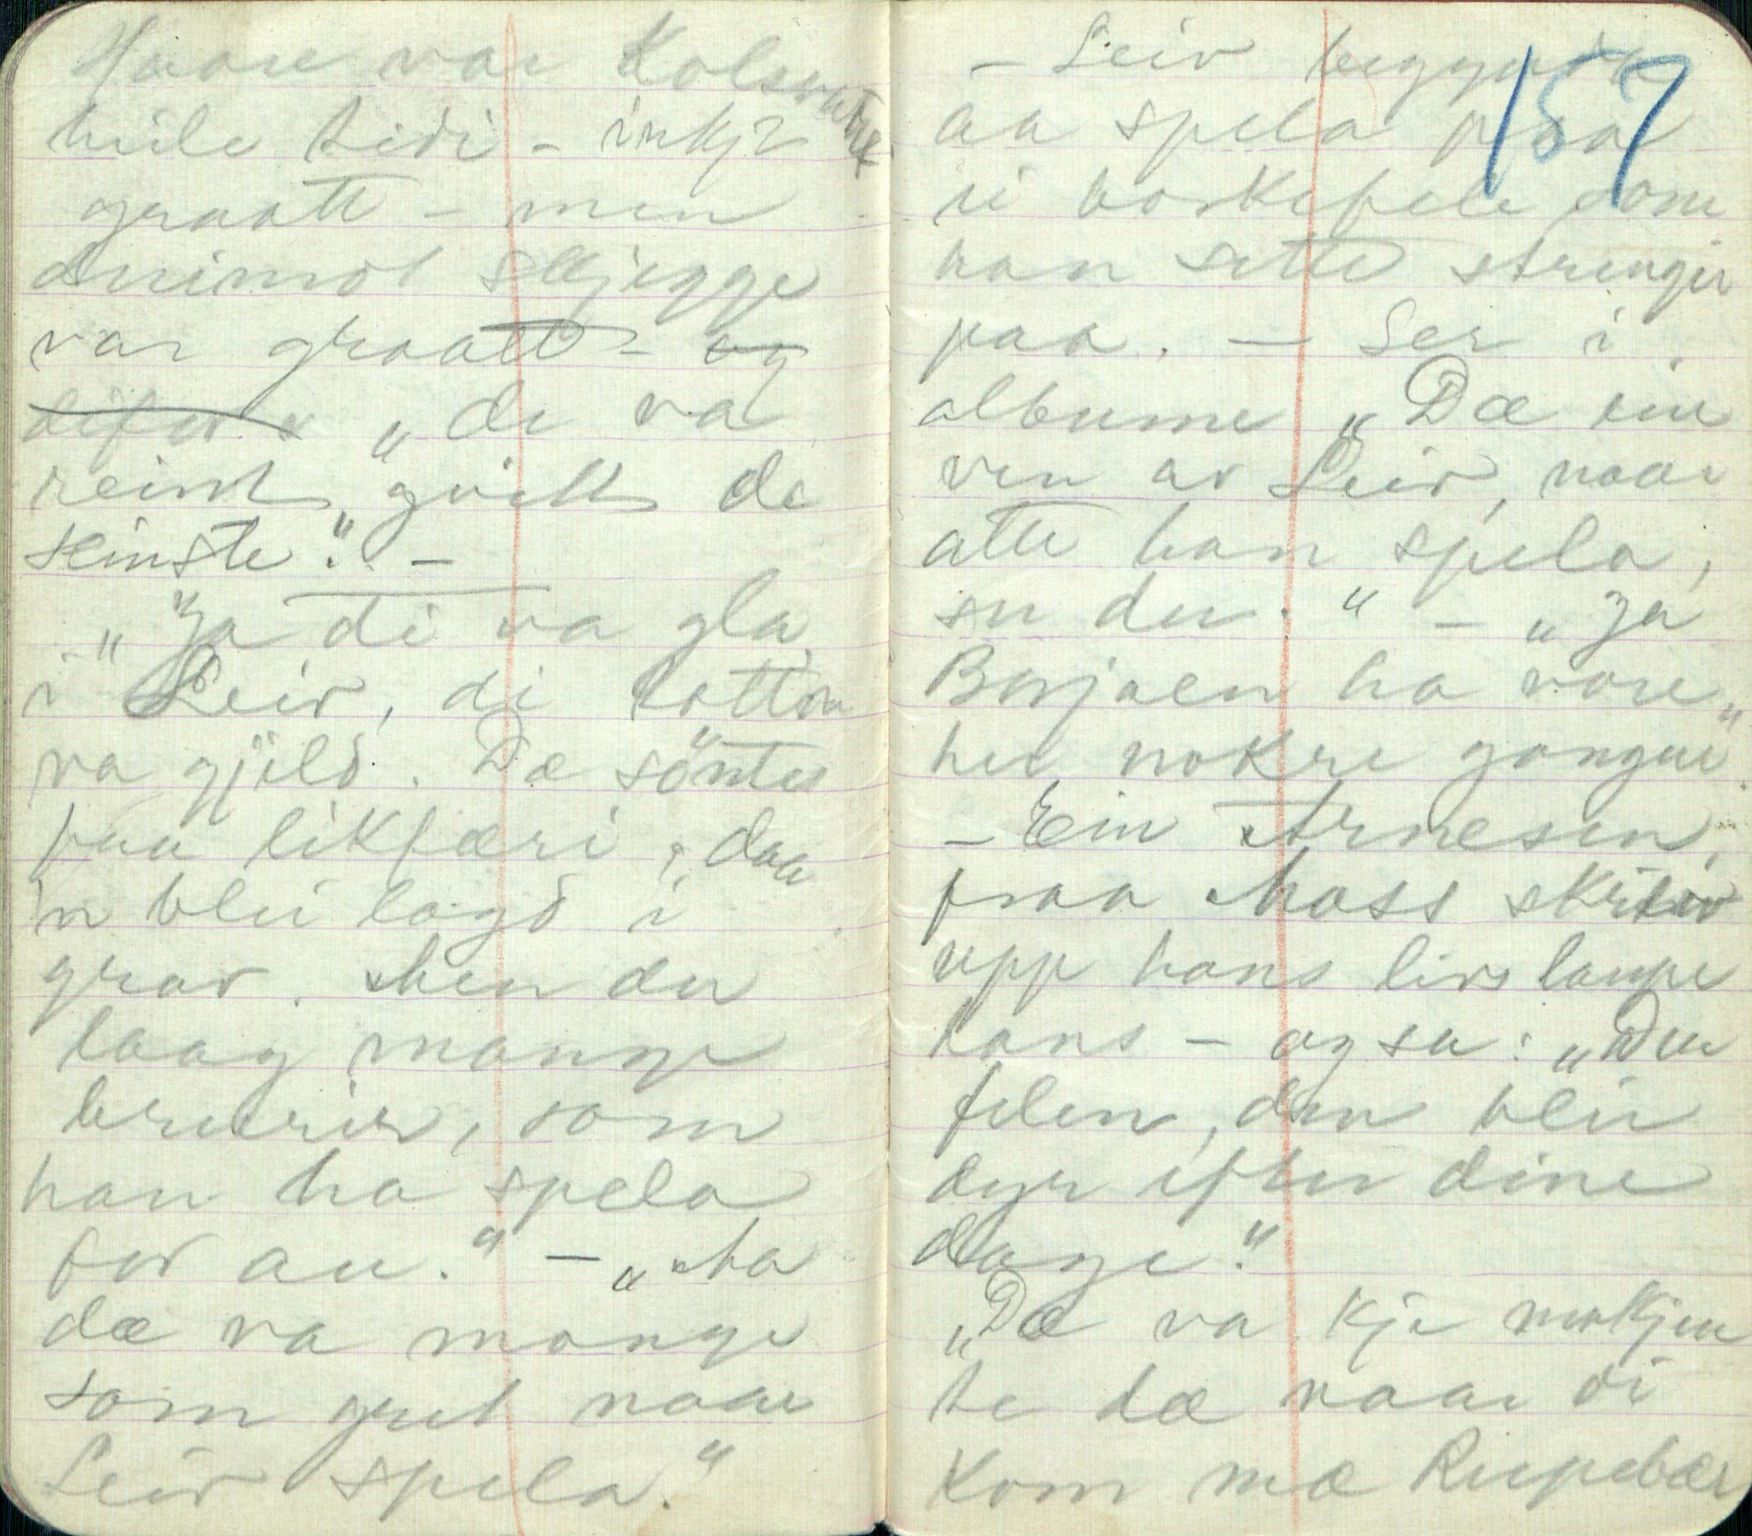 Haare var Kolsvarte
heile tidi - inkje
graatt - men
duimot skjegge
var graatt - og
difor "de va
reint gvitt de
seinste". -
"Ja di va gla
i Leiv, di totte'n
va gjild. Dæ söntes
paa likfæri, daa
'n blei lagd i
grav. Men der
laag mange
brurir, som
han ha spela
for au." - "Aa
dæ va mange
som gret naar
Leiv spela."
157
- Leiv begynde
aa spela paa
ei borkefele som
han sette strengir
paa. - Ser i
albume "Dæ ein
ven av Leiv, naar
atte han spela,
ser du." - "Ja
Borjaen ha vore
her nokre gonger."
- Ein Arnesen,
fraa Moss skreiv
upp hans livslaupe
hans - og sa: "Den
felen, den bleir
dyr efter dine
dage."
"Dæ va kje nokjen
te dæ naar di
kom mæ Ripebær